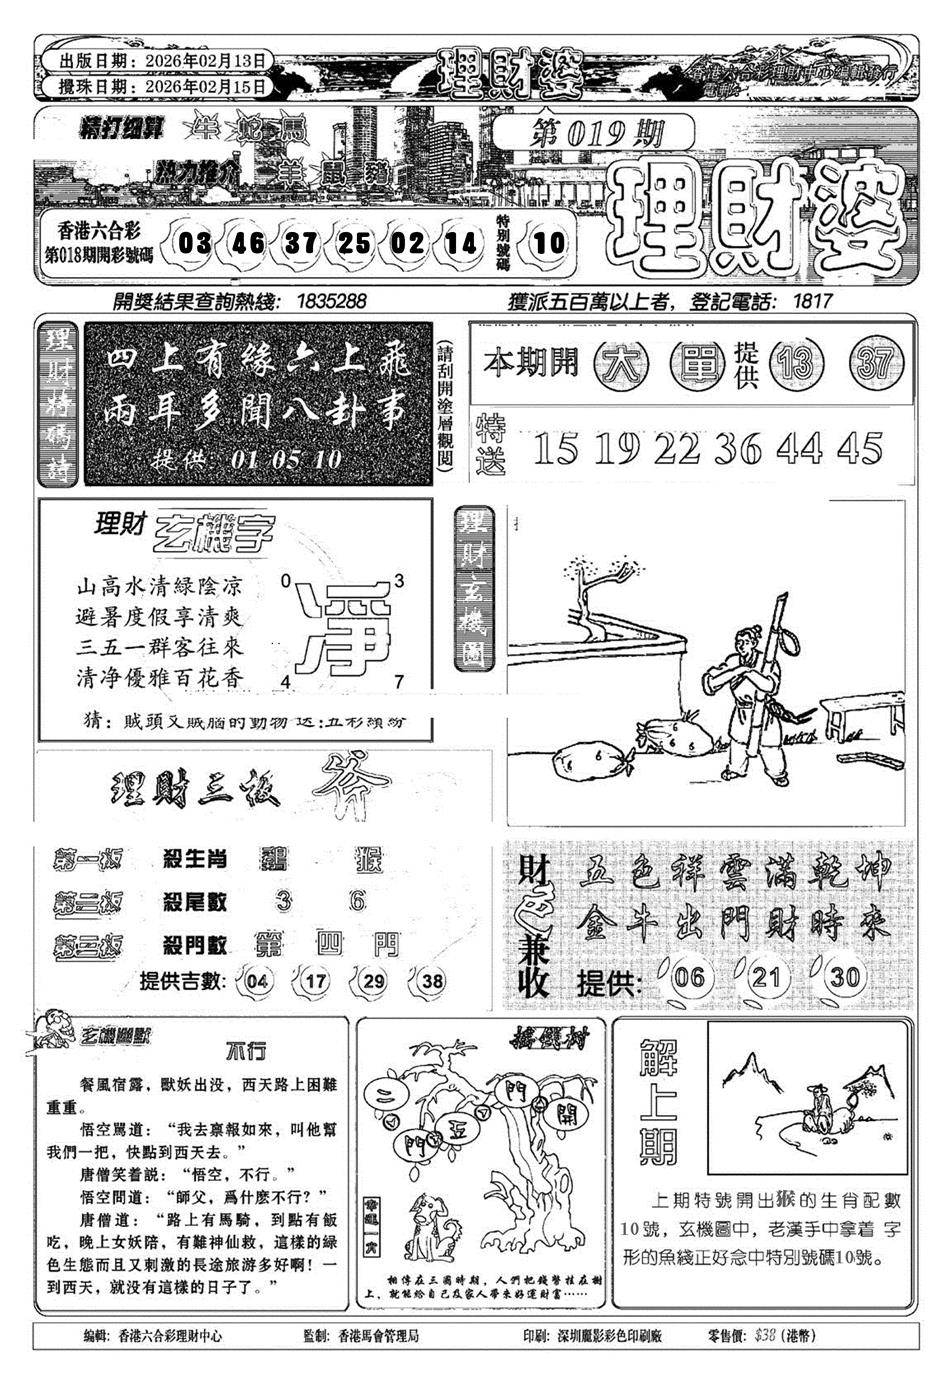 出版日期：2026年02月13日
攪珠日期：2026年02月15日
理財婆
香港六合彩理財中心編輯發行
精打细算 牛 蛇 馬
热力推介 羊 鼠 豬
第019期
理財婆
香港六合彩
第018期開彩號碼
03 46 37 25 02 14
特别號碼
10
開獎結果查詢熱綫：1835288
獲派五百萬以上者，登記電話：1817
理財特碼詩
四上有緣六上飛
兩耳多聞八卦事
提供：01 05 10
(請刮開塗層觀閱)
本期開 大 單 提供 13 37
特送 15 19 22 36 44 45
理財 玄機字
山高水清綠陰凉
避暑度假享清爽
三五一群客往來
清净優雅百花香
0 3
净
4 7
猜：賊頭又賊腦的動物 送:五彩繽紛
理財玄機圖
理財三板斧
第一板 殺生肖 鷄 猴
第二板 殺尾數 3 6
第三板 殺門數 第四門
提供吉數：04 17 29 38
財色兼收
五色祥雲滿乾坤
金牛出門財時來
提供：06 21 30
玄機幽默
不行
餐風宿露，獸妖出没，西天路上困難
重重。
悟空罵道：“我去禀報如來，叫他幫
我們一把，快點到西天去。”
唐僧笑着説：“悟空，不行。”
悟空問道：“師父，爲什麽不行？”
唐僧道：“路上有馬騎，到點有飯
吃，晚上女妖陪，有難神仙救，這樣的綠
色生態而且又刺激的長途旅游多好啊！一
到西天，就没有這樣的日子了。”
摇錢树
二門五門開
幸運一肖
相傳在三國時期，人們把錢幣挂在樹
上，就能給自己及家人帶來好運財富……
解上期
上期特號開出猴的生肖配數
10號，玄機圖中，老漢手中拿着 字
形的魚綫正好念中特別號碼10號。
編輯：香港六合彩理財中心
監制：香港馬會管理局
印刷：深圳麗影彩色印刷廠
零售價：$38（港幣）